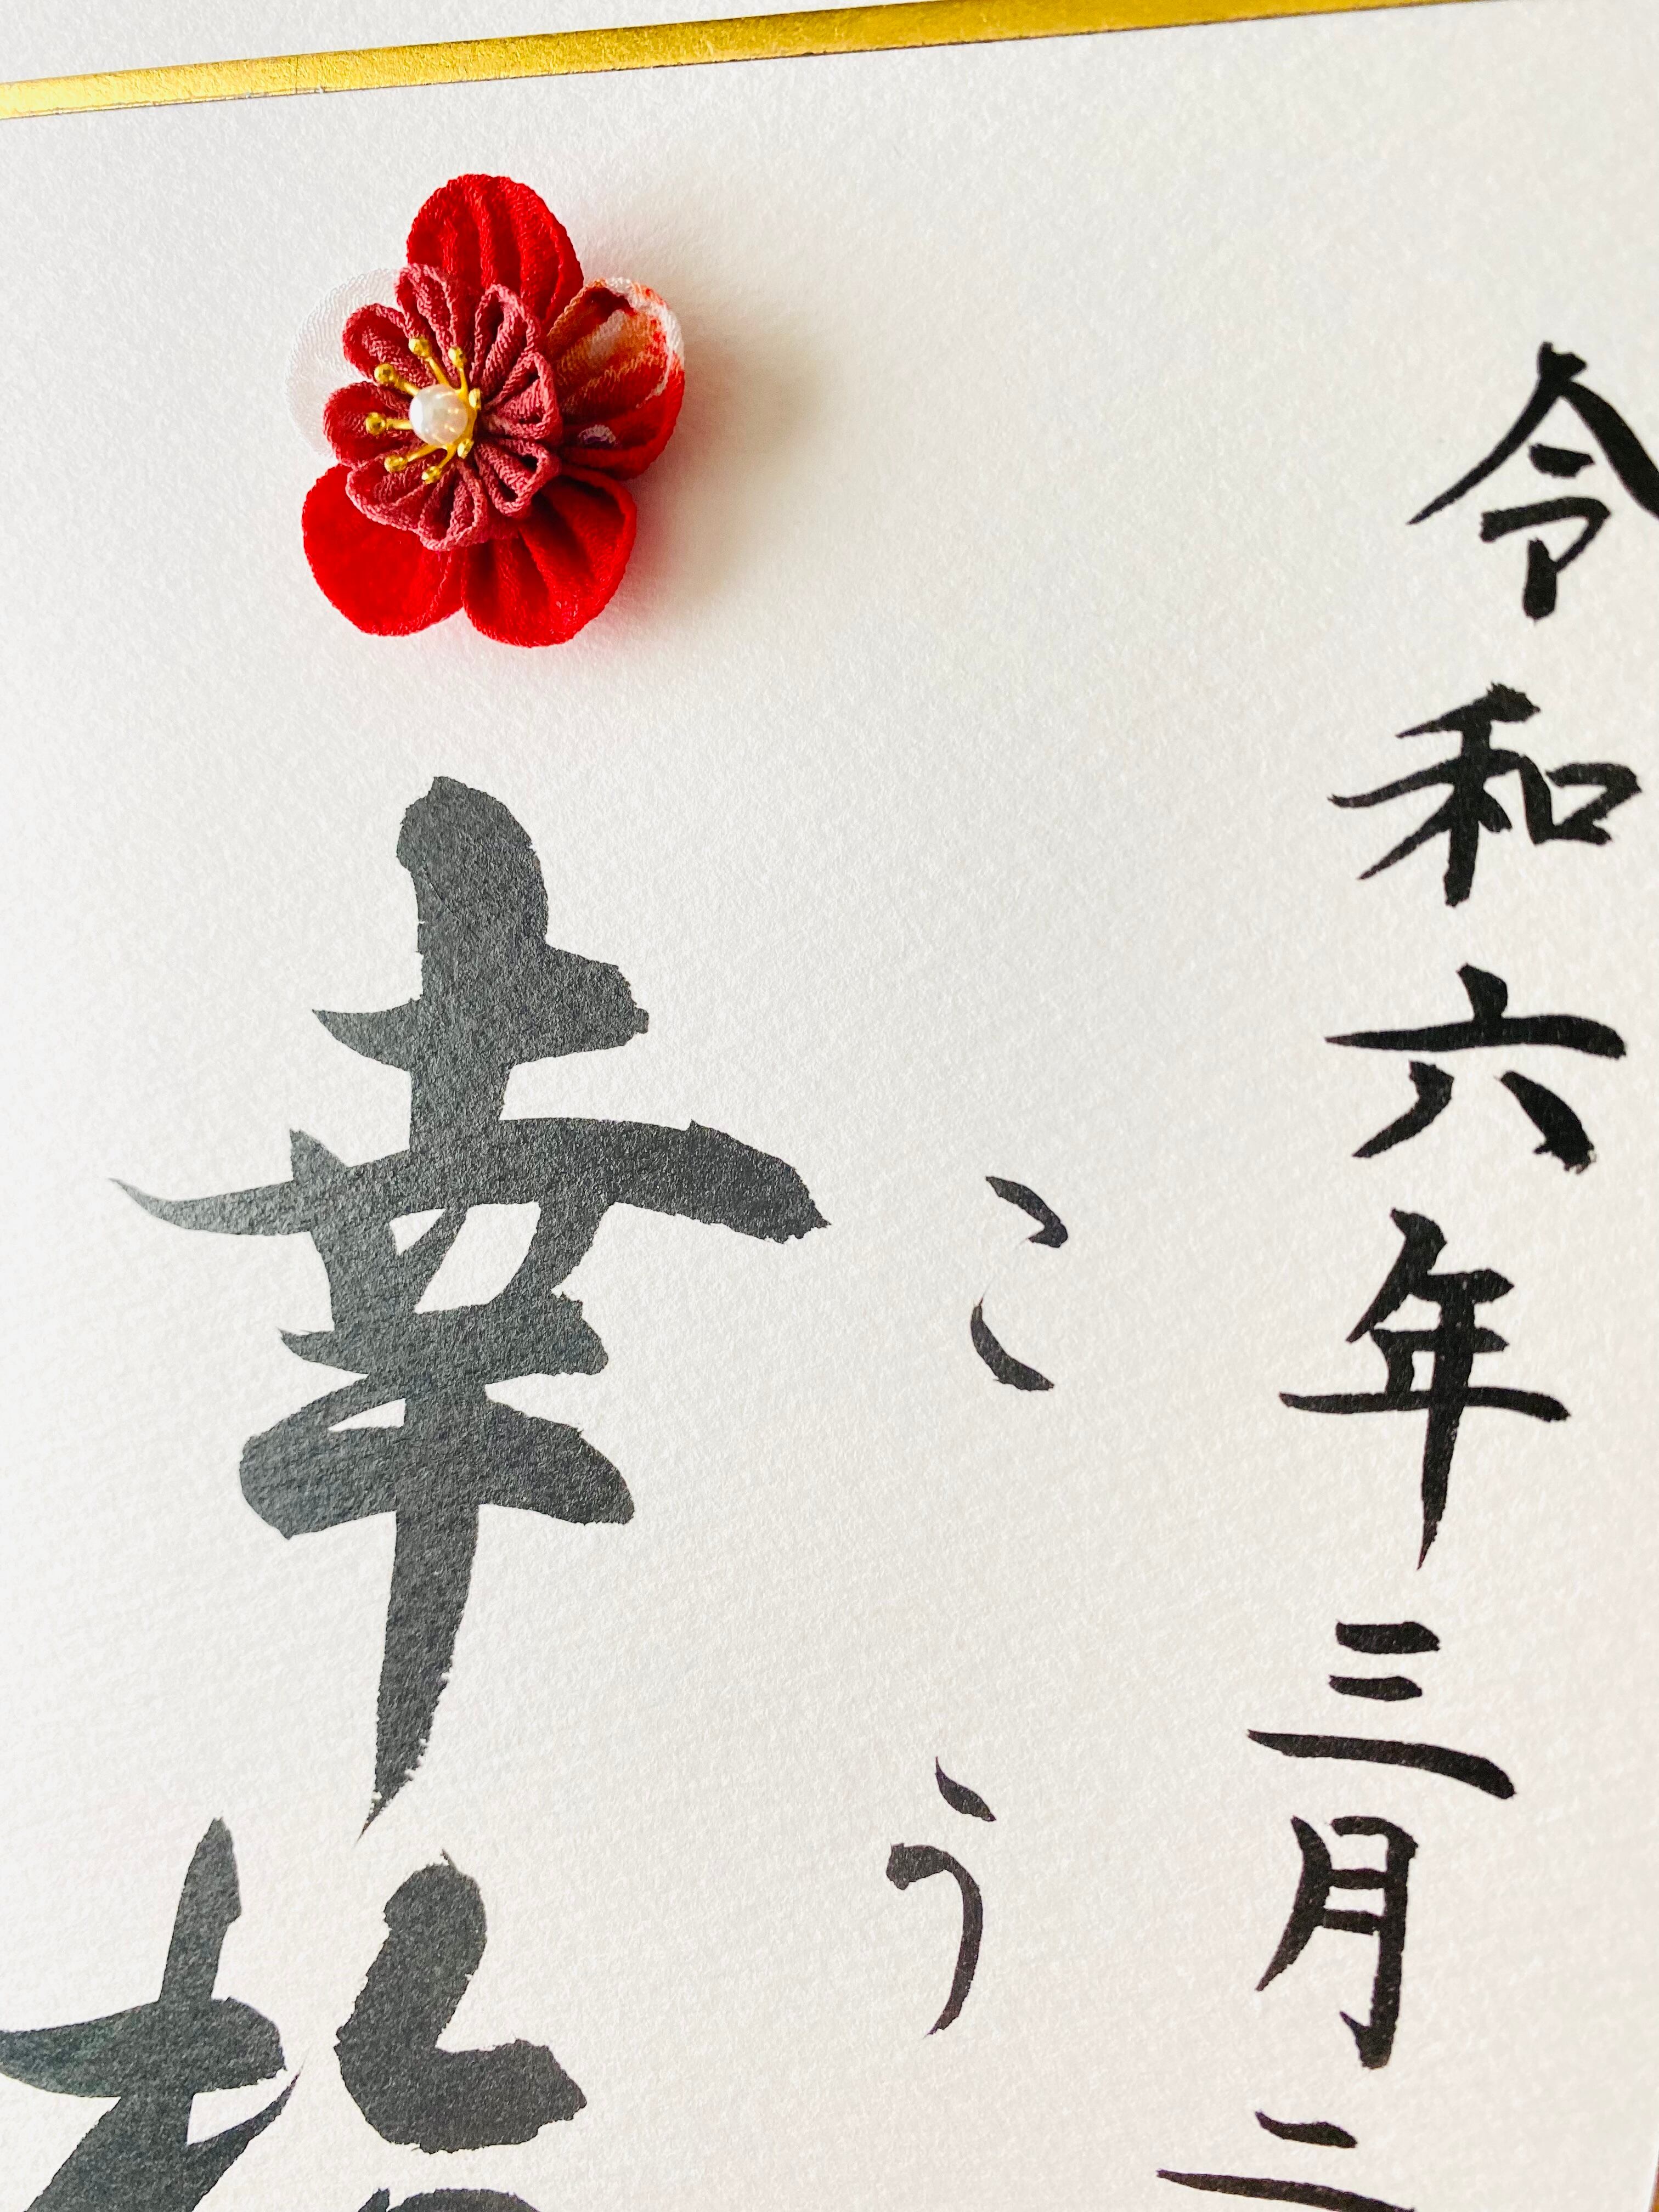 令和六年三月二
こう
幸